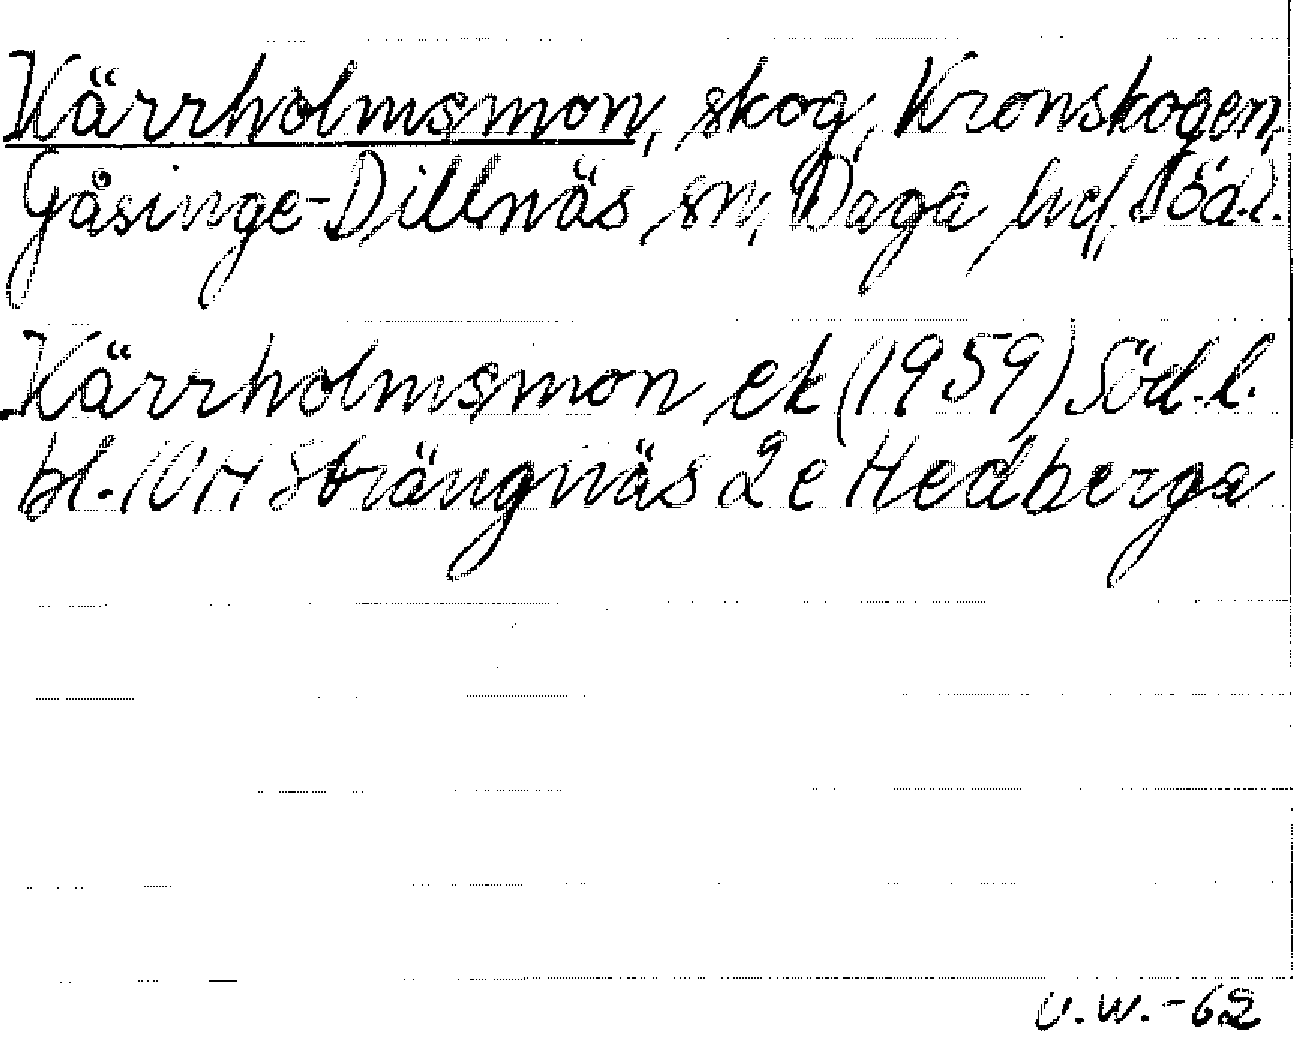 Kärrholmsmon, skog, Kronskogen,
Gåsinge-Dillnäs sn, Daga hd, Söd.l.
Kärrholmsmon ek (1959) Söd.l.
bl. 10H Strängnäs 2e Hedberga
U.W.-62